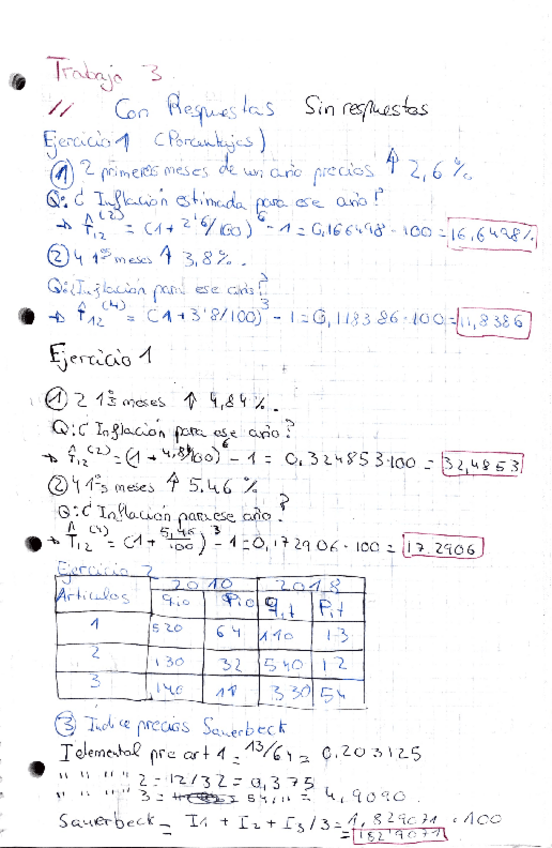 Trabajo 3
// Con Respuestas Sin respuestas
Ejercicio 1 (Porcentajes)
① 2 primeros meses de un año precios ↑ 2,6%
Q: ¿ Inflación estimada para ese año?
→ T̂₁₂⁽²⁾ = (1 + 2'6/100)⁶ - 1 = 0,166498 · 100 = 16,6498%
② 4 1ºs meses ↑ 3,8%.
Q: ¿Inflación para ese año?
→ T̂₁₂⁽⁴⁾ = (1 + 3'8/100)³ - 1 = 0,118386 · 100 = 11,8386
Ejercicio 1
① 2 1ºs meses ↑ 4,84%.
Q: ¿ Inflación para ese año?
→ T̂₁₂⁽²⁾ = (1 + 4,84/100)⁶ - 1 = 0.324853·100 = 32,4853
② 4 1ºs meses ↑ 5.46 %
Q: ¿ Inflación para ese año?
→ T̂₁₂⁽⁴⁾ = (1 + 5,46/100)³ - 1 = 0,172906 · 100 = 17.2906
Ejercicio 2
2010 2018
Artículos qio Pio qit Pit
1 520 64 110 13
2 130 32 540 12
3 140 11 330 54
③ Indice precios Sauerbeck
I elemental pre art 1 = 13/64 = 0.203125
" " " " 2 = 12/32 = 0,375
" " " " 3 = 54/11 = 4,9090.
Sauerbeck = I1 + I2 + I3/3 = 1,829071 · 100
= 182'9071